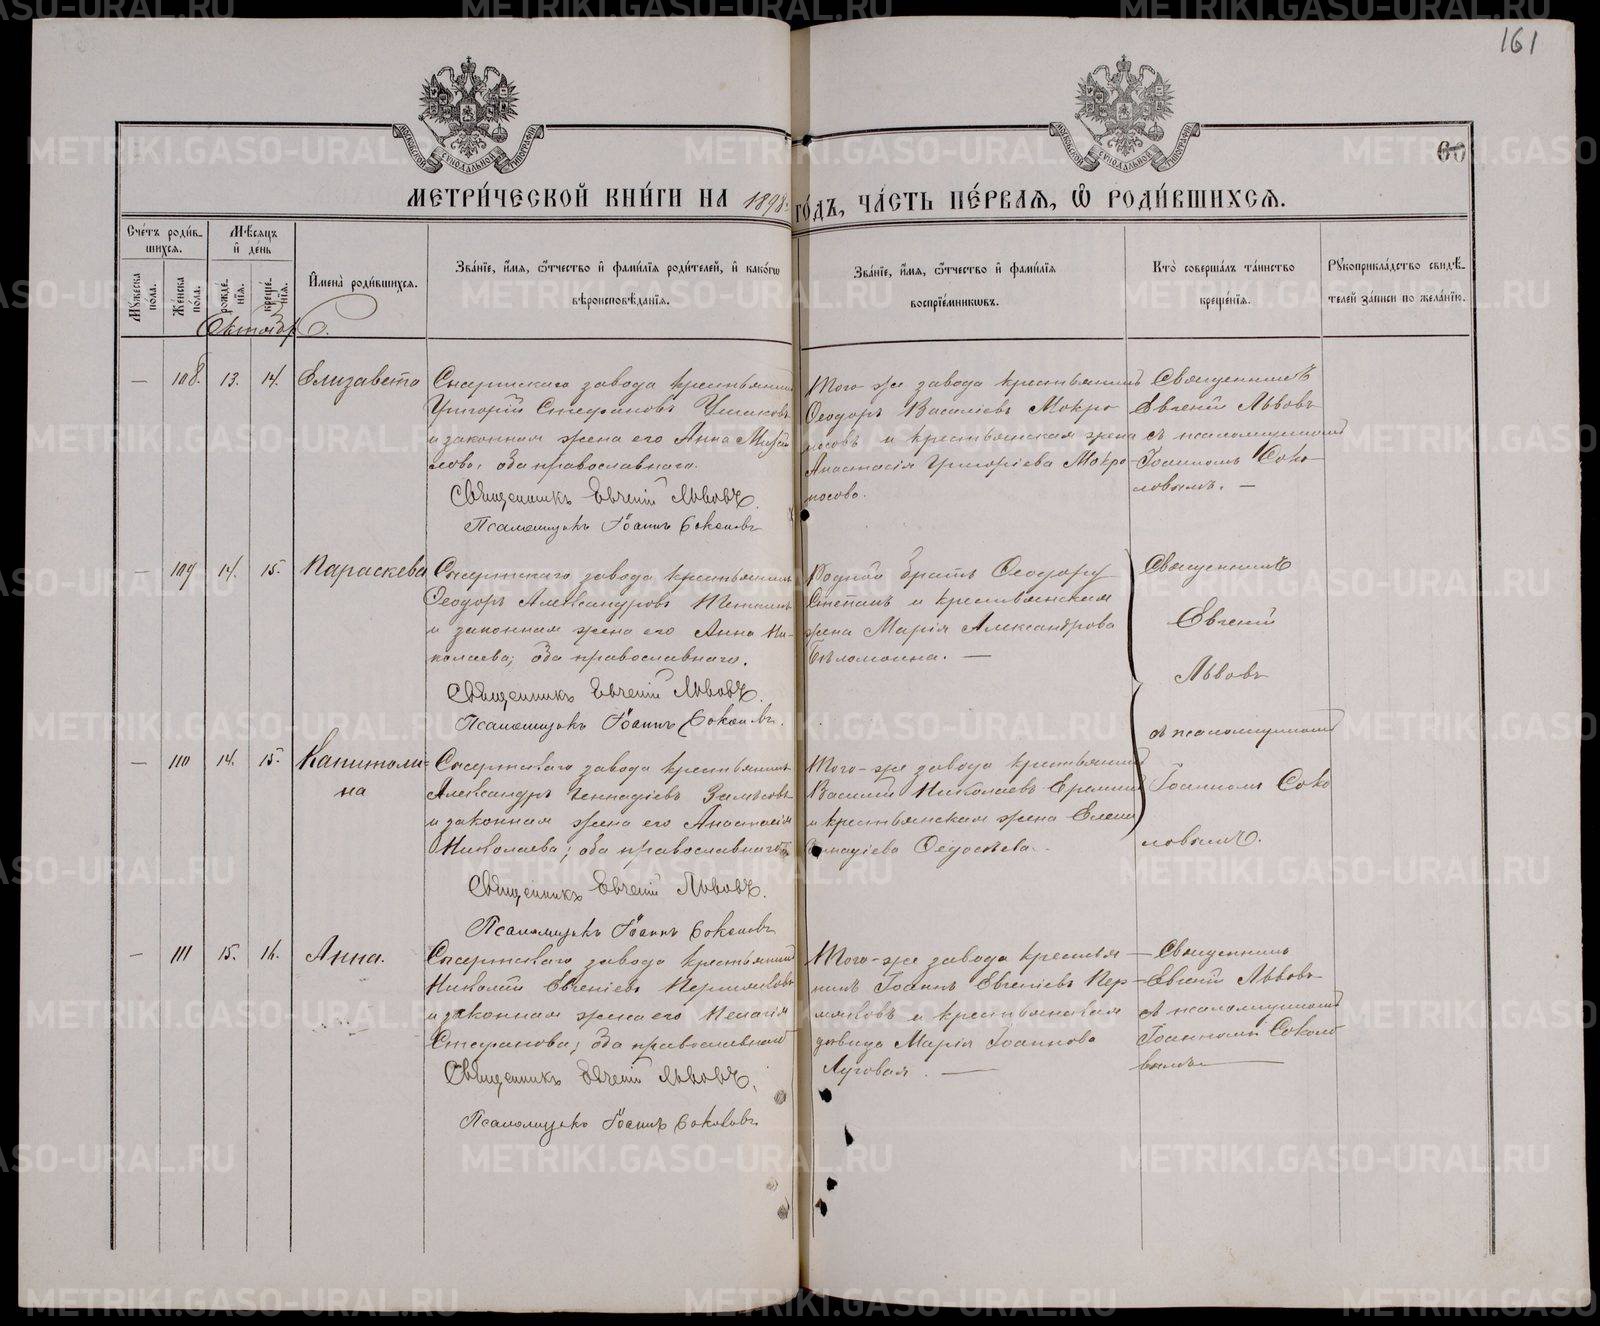 161
60
МЕТРИЧЕСКОЙ КНИГИ НА 1898 ГОДЪ, ЧАСТЬ ПЕРВАЯ, Ѡ РОДИВШИХСЯ.
Счетъ родившихся.
Мужеска пола.
Женска пола.
Мѣсяцъ и день
рожденія.
крещенія.
Имена родившихся.
Званіе, имя, отчество и фамилія родителей, и какогѡ
вѣроисповѣданія.
Званіе, имя, отчество и фамилія
воспріемниковъ.
Кто совершалъ таинство
крещенія.
Рукоприкладство свидѣ-
телей записи по желанію.
Октябрь.
— 108. 13. 14. Елизавета
Сысертскаго завода крестьянинъ
Григорій Стефановъ Ушаковъ
и законная жена его Анна Михай
лова, оба православнаго.
Священникъ Евгеній Львовъ.
Псаломщикъ Іоаннъ Соколовъ
Того-же завода крестьянинъ
Ѳеодоръ Василіевъ Мокро
носовъ и крестьянская жена
Анастасія Григоріева Мокро-
носова.
Священникъ
Евгеній Львовъ
съ псаломщикомъ
Іоанномъ Соко-
ловымъ. —
— 109 14. 15. Параскева
Сысертскаго завода крестьянинъ
Ѳеодоръ Александровъ
и законная жена его Анна Ни-
колаева; оба православнаго.
Священникъ Евгеній Львовъ.
Псаломщикъ Іоаннъ Соколовъ.
Родной братъ Ѳеодору
Степанъ и крестьянская
жена Марія Александрова
Бѣломоина. —
Священникъ
Евгеній
Львовъ
съ псаломщикомъ
Іоанномъ Соко
ловымъ.
— 110 14. 15. Капитоли-
на
Сысертскаго завода крестьянинъ
Александръ Геннадіевъ
и законная жена его Анастасія
Николаева; оба православнаго
Священникъ Евгеній Львовъ.
Псаломщикъ Іоаннъ Соколовъ
Того-же завода крестьянинъ
Василій Николаевъ Еремин
и крестьянская жена Елена
Геннадіева Ѳедосѣева.
— 111 15. 16. Анна.
Сысертскаго завода крестьянинъ
Николай Евгеніевъ Пермяковъ
и законная жена его Пелагія
Стефанова; оба православнаго
Священникъ Евгеній Львовъ.
Псаломщикъ Іоаннъ Соколовъ
Того-же завода крестья-
нинъ Іоаннъ Евгеніевъ Пер-
мяковъ и крестьянская
дѣвица Марія Іоаннова
Луговая. —
Священникъ
Евгеній Львовъ
съ псаломщикомъ
Іоанномъ Соколо
вымъ
METRIKI.GASO-URAL.RU